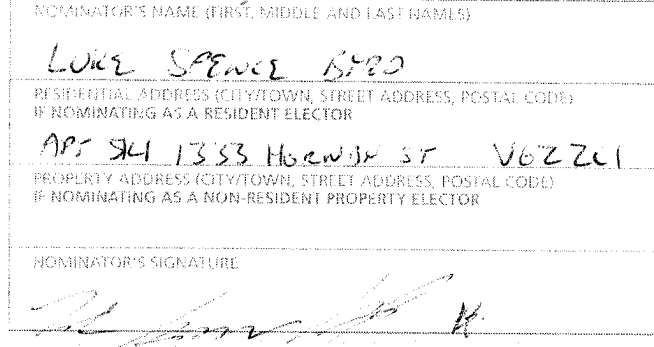 NOMINATOR'S NAME (FIRST, MIDDLE AND LAST NAMES)
LUKE SPENCE BYRD
RESIDENTIAL ADDRESS (CITY/TOWN, STREET ADDRESS, POSTAL CODE)
IF NOMINATING AS A RESIDENT ELECTOR
APT 1353 ST V6Z
PROPERTY ADDRESS (CITY/TOWN, STREET ADDRESS, POSTAL CODE)
IF NOMINATING AS A NON-RESIDENT PROPERTY ELECTOR
NOMINATOR'S SIGNATURE